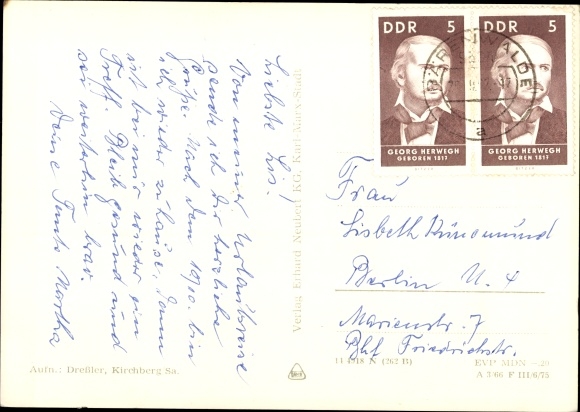 Liebste Lis!
Von meiner Urlaubsreise
sende ich Dir herzliche
Grüße. Nach dem 19.10. bin
ich wieder zuhause, dann
ist bei mir wieder ein
Treff. Bleib gesund und
sei weiterhin brav.
Deine Tante Martha
Aufn.: Dreßler, Kirchberg Sa.
Verlag Erhard Neubert KG, Karl-Marx-Stadt
DDR 5
GEORG HERWEGH
GEBOREN 1817
DDR 5
GEORG HERWEGH
GEBOREN 1817
BÄRENWALDE
a
Frau
Lisbeth Künemund
Berlin N. 4
Marienstr. 7
Bhf Friedrichstr.
11 4518 N (262 B)
EVP MDN -,20
A 3/66 F III/6/75